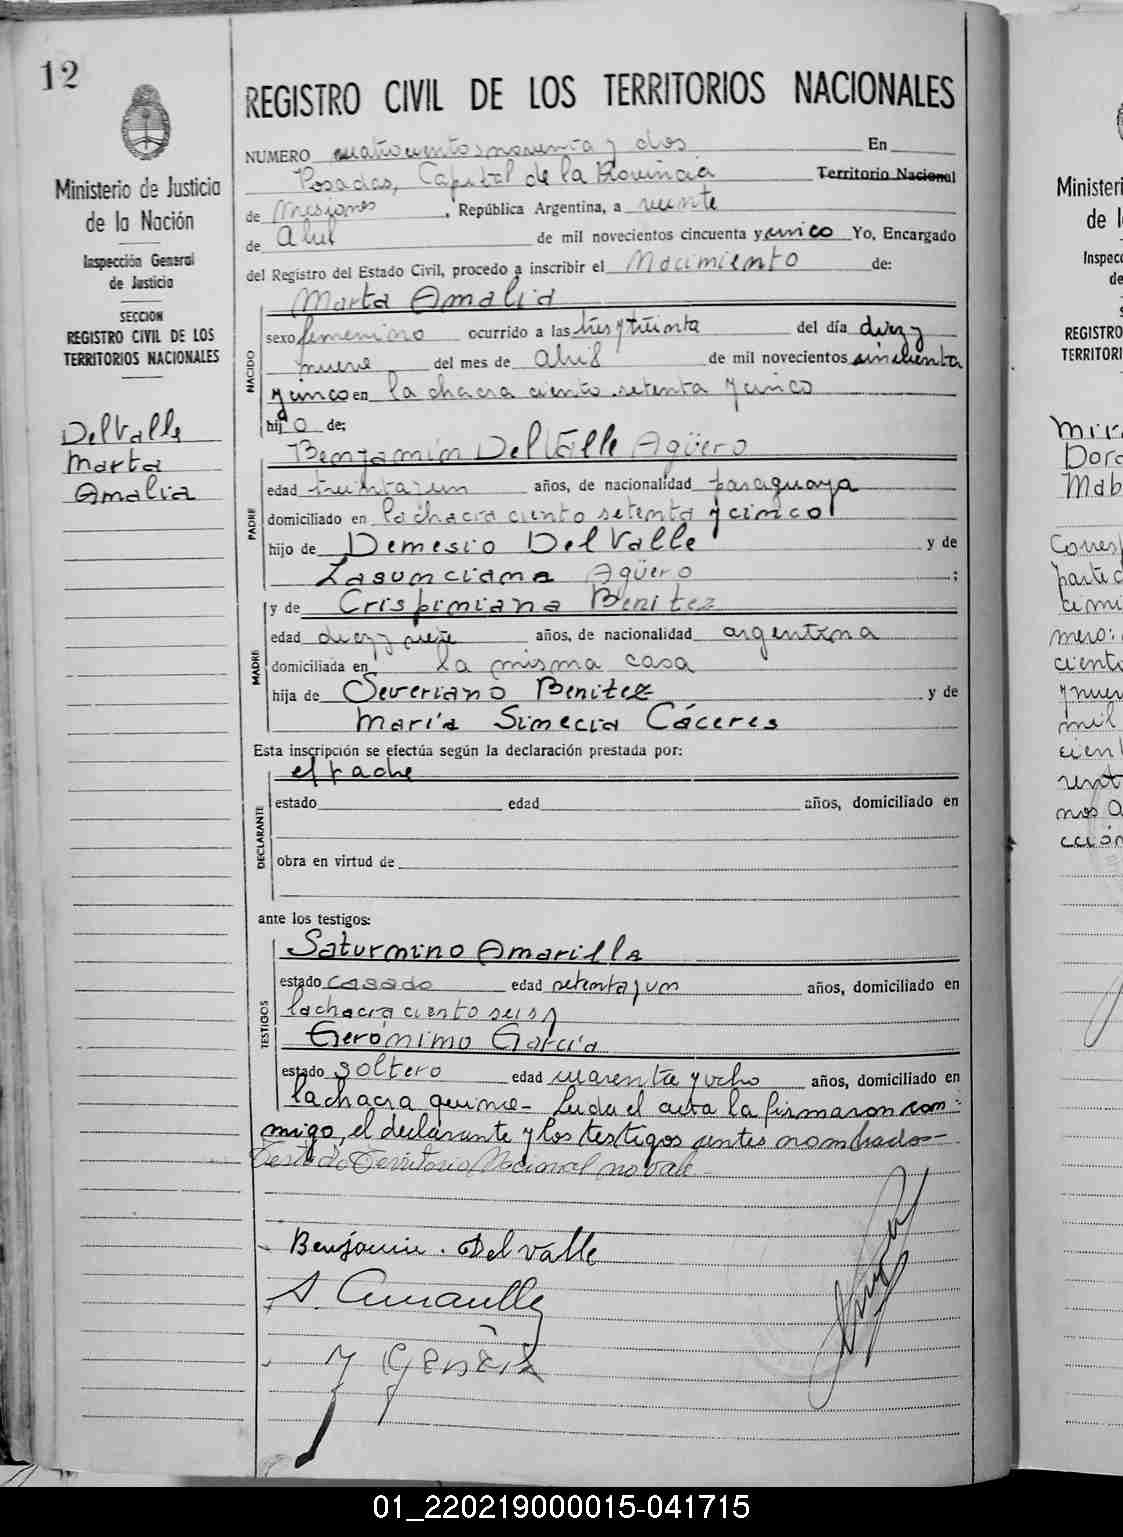 12
Ministerio de Justicia
de la Nación
Inspección General
de Justicia
SECCION
REGISTRO CIVIL DE LOS
TERRITORIOS NACIONALES
DelValle
Marta
Amalia
REGISTRO CIVIL DE LOS TERRITORIOS NACIONALES
NUMERO cuatrocientos noventa y dos En
Posadas, Capital de la Provincia Territorio Nacional
de Misiones, República Argentina, a veinte
de Abril de mil novecientos cincuenta y cinco Yo, Encargado
del Registro del Estado Civil, procedo a inscribir el Nacimiento de:
NACIDO
Marta Amalia
sexo femenino ocurrido a las tres y treinta del día diez y
nueve del mes de abril de mil novecientos cincuenta
y cinco en la chacra ciento setenta y cinco
hija de:
PADRE
Benjamín DelValle Agüero
edad treinta y un años, de nacionalidad paraguaya
domiciliado en la chacra ciento setenta y cinco
hijo de Demesio DelValle y de
Lasunciana Agüero ;
MADRE
y de Crispiniana Benitez
edad diez y siete años, de nacionalidad argentina
domiciliada en la misma casa
hija de Severiano Benitez y de
María Simecia Cáceres
Esta inscripción se efectúa según la declaración prestada por:
DECLARANTE
el padre
estado edad años, domiciliado en
obra en virtud de
ante los testigos:
TESTIGOS
Saturnino Amarilla
estado casado edad setenta y un años, domiciliado en
la chacra ciento seis y
Gerónimo García
estado soltero edad cuarenta y ocho años, domiciliado en
la chacra quince - Leida el acta la firmaron con-
migo, el declarante y los testigos antes nombrados-
Testado Territorio Nacional no vale-
Benjamin. Del valle
S. Amarilla
Minister
de l
Inspecc
de
REGISTRO
TERRITORI
Dora
Mab
01_220219000015-041715